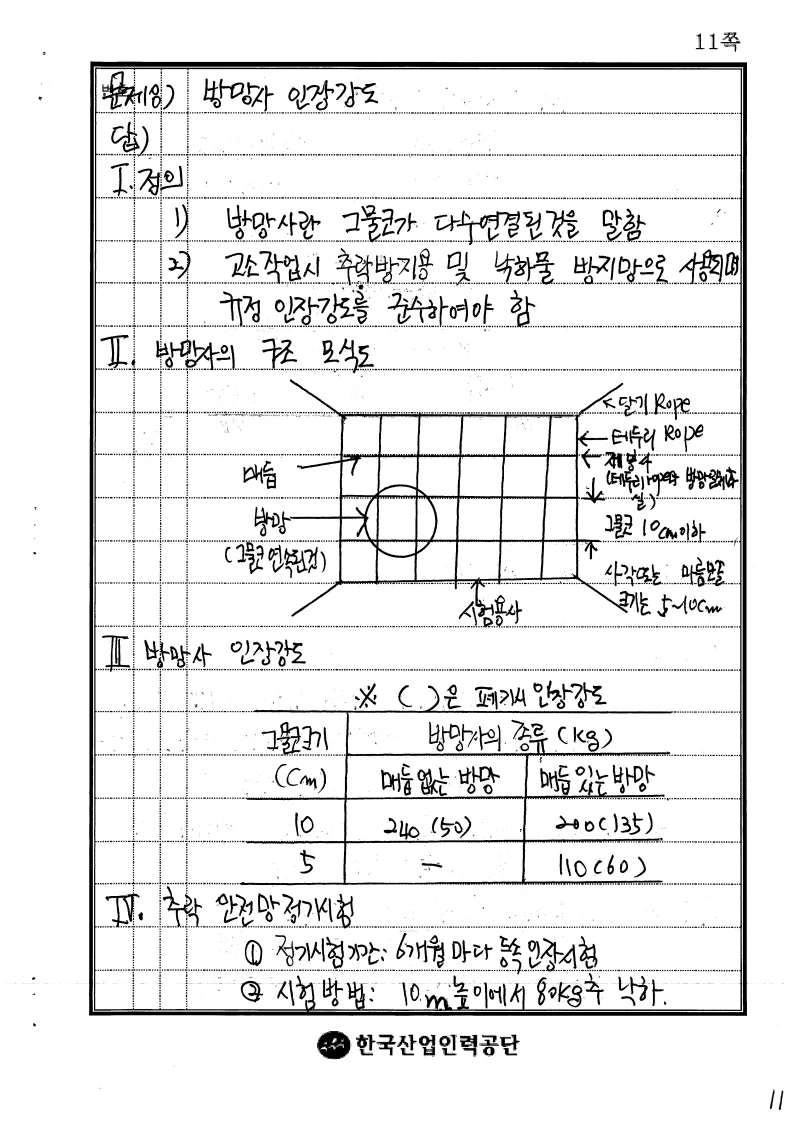 11쪽
문제8) 방망사 인장강도
답)
I. 정의
1) 방망사란 그물코가 다수연결된것을 말함
2) 고소작업시 추락방지용 및 낙하물 방지망으로 사용되며
규정 인장강도를 준수하여야 함
II. 방망사의 구조 모식도
달기 Rope
테두리 Rope
재봉사
(테두리 rope와 방망을
실)
매듭
방망
(그물코 연속된것)
그물코 10cm이하
사각또는 마름모꼴
크기는 5~10cm
시험용사
III 방망사 인장강도
※ ( )은 폐기시 인장강도
그물크기
(Cm)
방망사의 종류 (kg)
매듭없는 방망
매듭있는방망
10
240 (50)
200(135)
5
—
110(60)
IV. 추락 안전망정기시험
① 정기시험기간: 6개월마다 등속인장시험
② 시험방법: 10m높이에서 80kg추 낙하.
한국산업인력공단
11